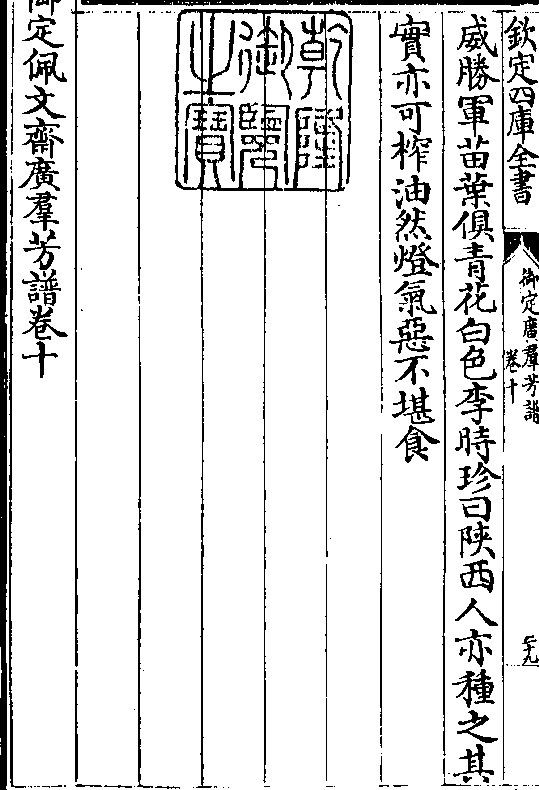 欽定四庫全書
御定廣羣芳譜
卷十
二十九
威勝軍苗葉俱青花白色李時珍曰陝西人亦種之其
實亦可榨油然燈氣惡不堪食
乾隆
御覽
之寶
御定佩文齋廣羣芳譜卷十